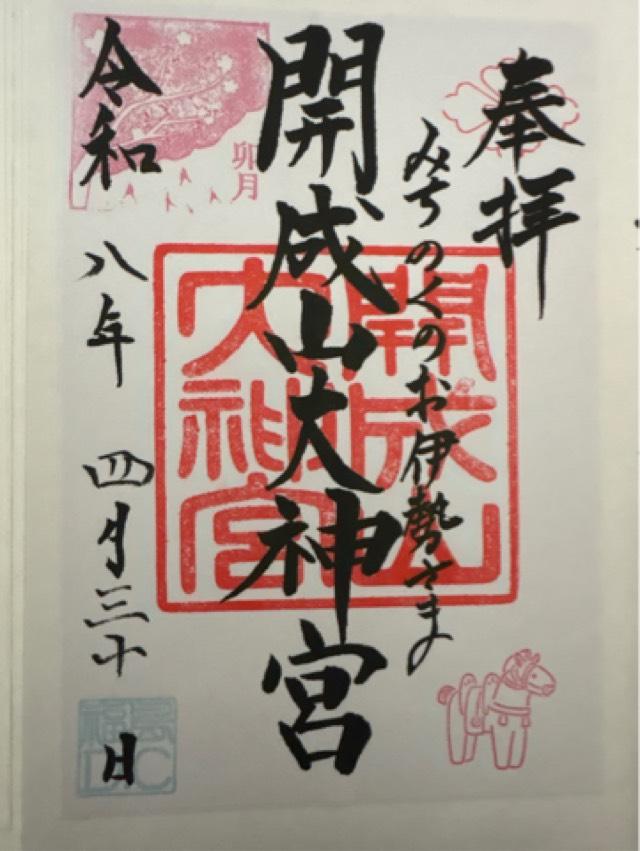 奉拝
みちのくのお伊勢さま
開成山大神宮
開成山
大神宮
卯月
令和八年四月三十日
福島
DC